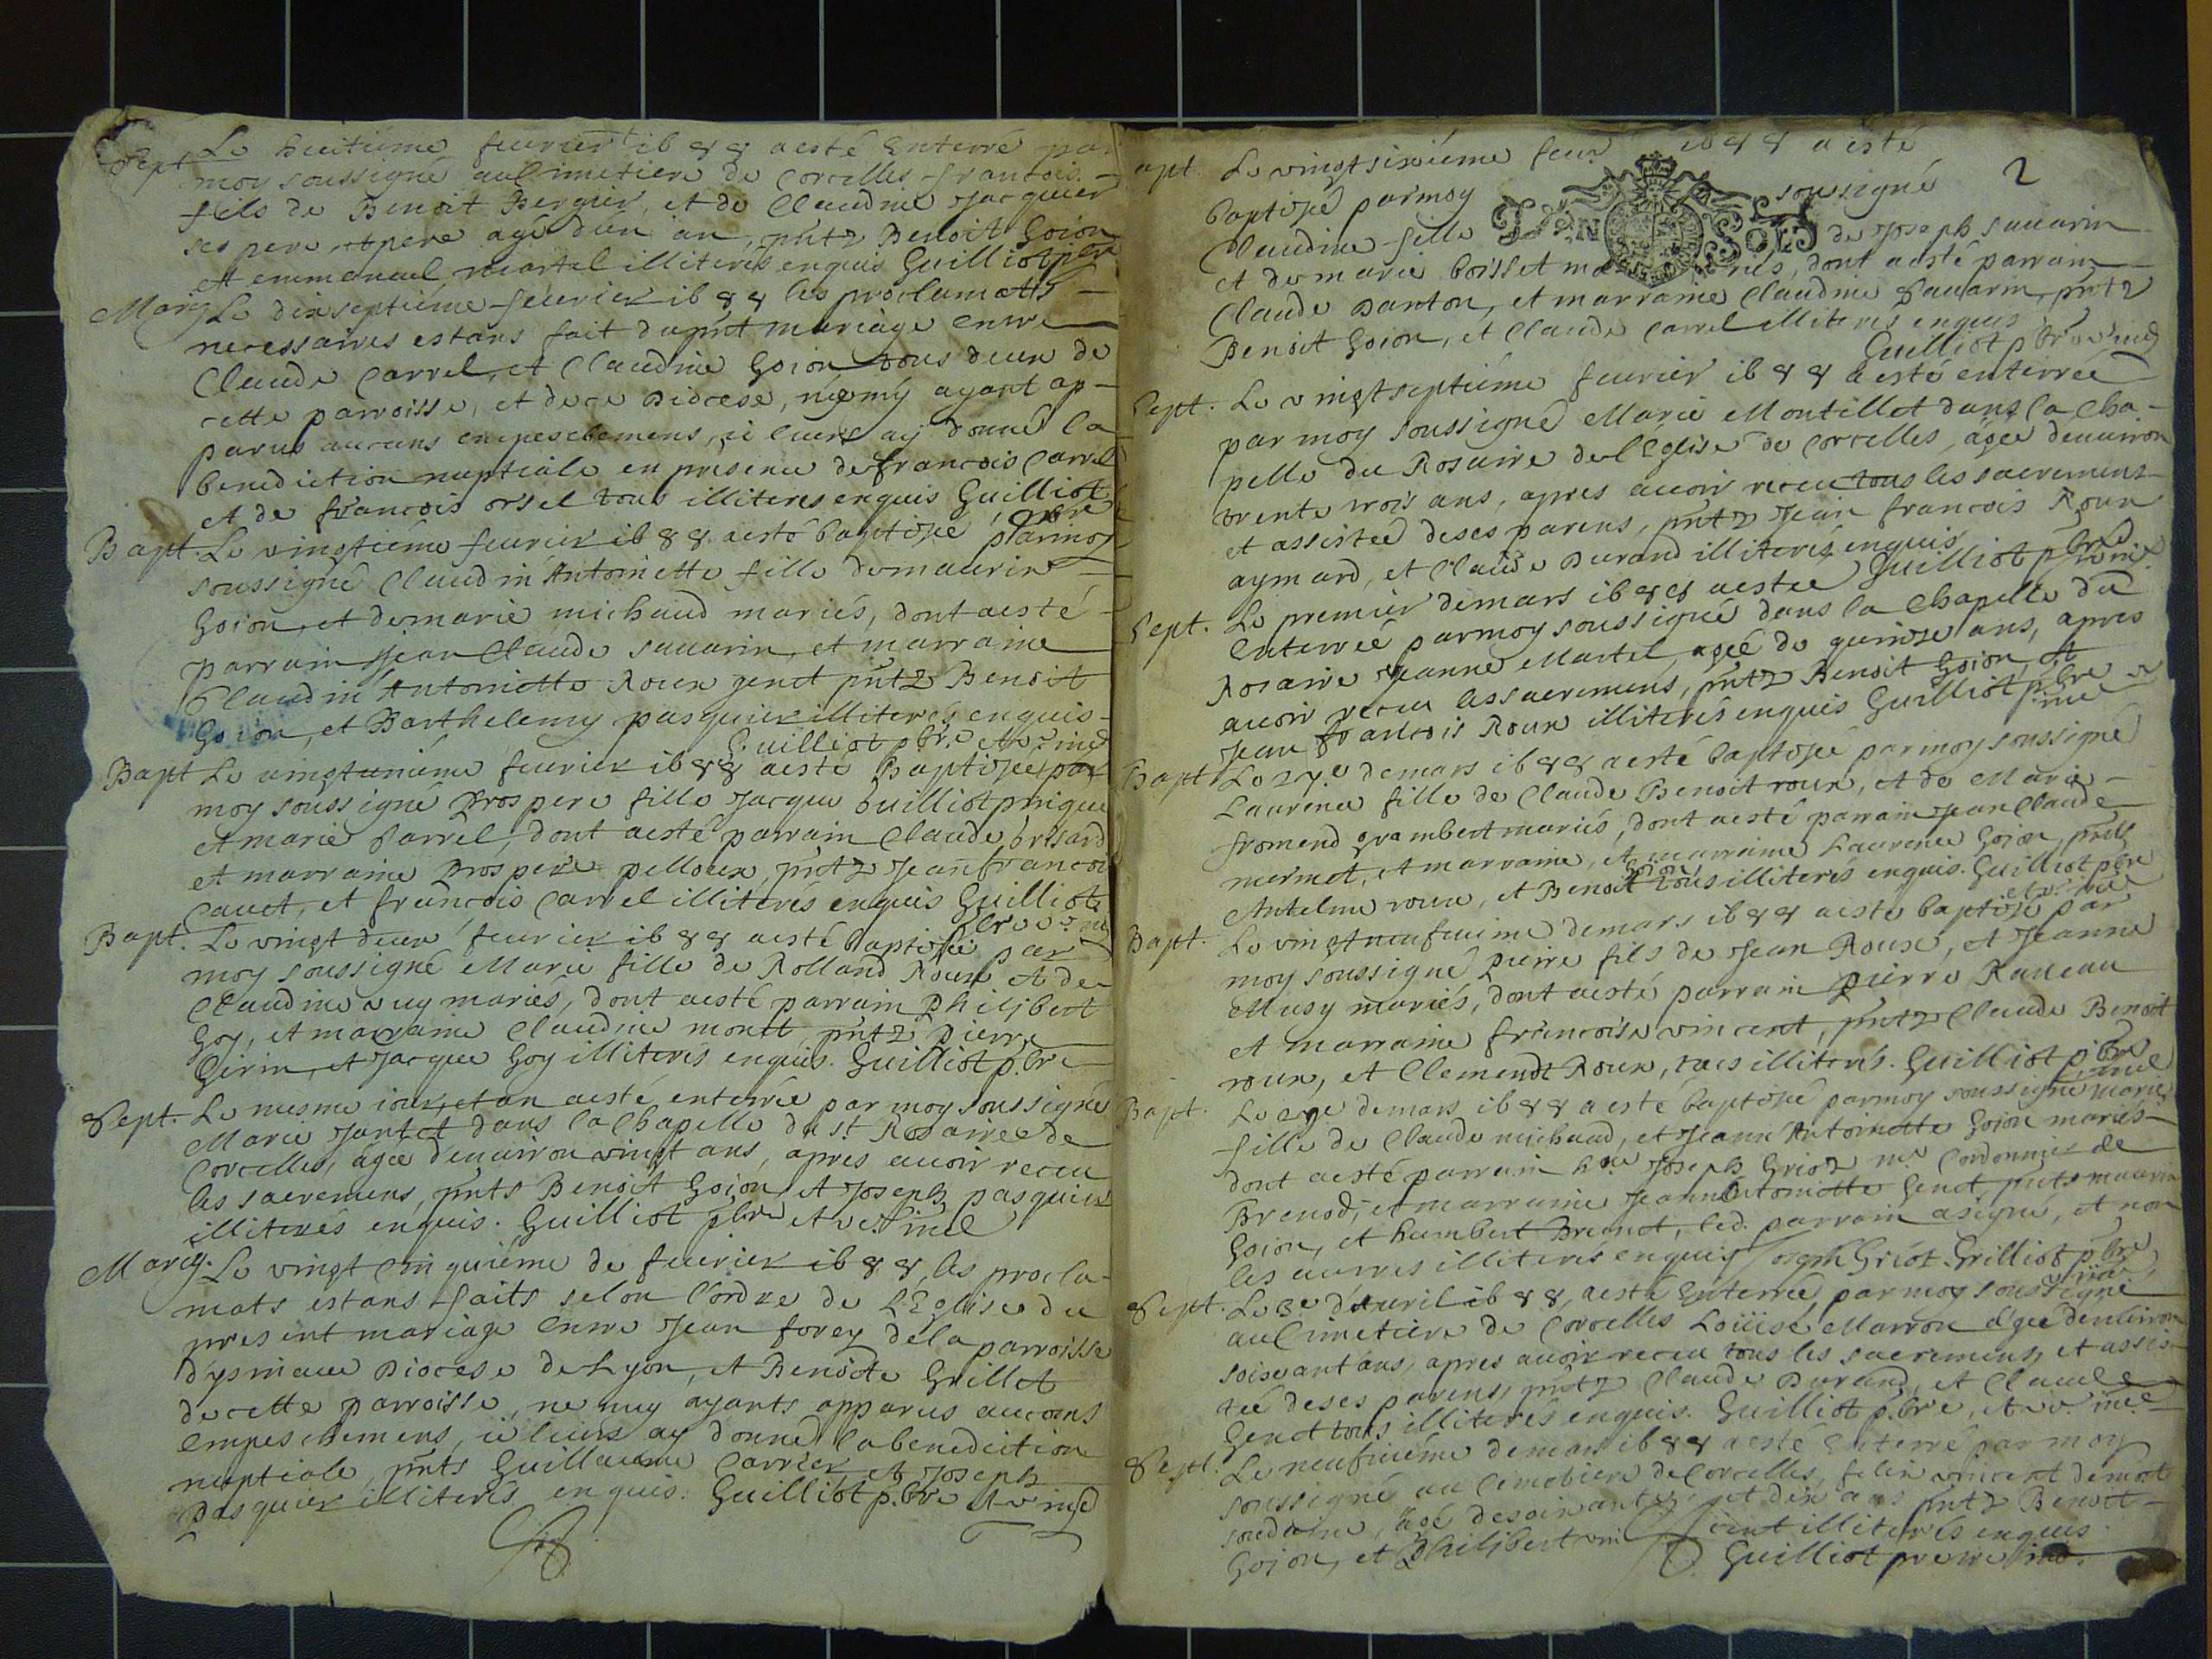 Sept. Le huitiéme feurier ib88 a esté Enterré par
moy soussigné au Cimetiere de Corcelles francois
fils de Benoit Bergier, et de Claudine Jacquier
ses pere et pere agé d'un an, pntz Benoit Goion
et emmanuel martel illiterés enquis Guilliot pbre
Marig. Le dixseptiéme feurier ib88 les proclamatts
necessaires estans fait du pnt mariage entre
Claude Carrel, et Claudine Goion tous deux de
cette parroisse, et de ce Diocese, ne my ayant ap-
parus aucuns empeschemens, je leurs ay donné la
benediction nuptiale en presence de francois Carrel
et de francois orsel tous illiteres enquis Guilliot
pbre
Bapt. Le vingtiéme feurier ib88 a esté baptisée parmoy
soussigné Claudin Antoinette fille de maurin
Goion, et de marie michaud mariés, dont a esté
parrain Jean Claude sauarin, et marraine
Claudin Antoinette Roux genet pntz Benoit
Goion, et Barthelemy pasquier illiterés enquis
Guilliot pbre et v. ind
Bapt Le vingtuniéme feurier ib88 a esté Baptisée par
moy soussigné Prospere fille Jacque Guilliot prnique
et marie Carrel, dont a esté parrain Claude brisard
et marraine Prospere pelloux, pntz Jean francois
Cauet, et francois Carrel illiterés enquis Guilliot
pbre v. ind
Bapt. Le vingt deux feurier ib88 a esté baptisée par
moy soussigné Marie fille de Rolland Roux et de
Claudine Buy mariés, dont a esté parrain Philibert
Goy, et marraine Claudine monet, pntz Pierre
Girin, et Jacque Goy illiterés enquis. Guilliot p.bre
Sept. Le mesme iour, et an a esté enterrée par moy soussigné
Marie Jantet dans la Chapelle du st. Rosaire de
Corcelles, agée denuiron vingt ans, apres auoir receu
les sacremens, pnts Benoit Goion, et Joseph pasquier
illiterés enquis. Guilliot pbre et v. ind
Marig. Le vingt Cinquiéme de feurier ib88, les procla-
mats estans faits selon l'ordre de L'Eglise du
present mariage entre Jean forey de la parroisse
d'ysinaue Diocese de Lyon, et Benoite Guillet
de cette parroisse, ne my ayants apparus aucuns
empeschemens, je leurs ay donné la benediction
nuptiale, pnts Guillaume Carrier et Joseph
Pasquier illiterés enquis. Guilliot p.bre et v ind
apt. Le vingtsixiéme feur 1688 a esté
2
baptisé parmoy soussigné
Claudine fille de Joseph sauarin
et de marie boisset mariés, dont a esté parrain
Claude Danton, et marraine Claudine sauarin, pntz
Benoit Goion, et Claude Carrel illiterés enquis
Guilliot pbre v. ind
Sept. Le vingtseptiéme feurier ib88 a esté enterrée
par moy soussigné Marie Montillet dans la Cha-
pelle du Rosaire de l'Eglise de Corcelles, agée denuiron
trente trois ans, apres auoir receu tous les sacremens
et assistée de ses parens, pntz Jean francois Roux
aymard, et Claude Durand illiterés enquis
Guilliot pbre
Sept. Le premier de mars ib88 a estée
Enterrée parmoy soussigné dans la Chapelle du
Rosaire Jeanne Martel, agée de quinze ans, apres
auoir receu les sacremens, pntz Benoit Goion, et
Jean francois Roux illiterés enquis Guilliot pbre
Bapt. Le 27e de mars ib88 a esté baptisée par moy soussigné
Laurence fille de Claude Benoit roux, et de Marie
fromend grambert mariés, dont a esté parrain Jean Claude
mermet, et marraine, et marraine Laurence Goion, pntz
Antelme roux, et Benoit Goion tous illiterés enquis. Guilliot pbre
Bapt. Le vingtneufuiéme de mars ib88 a esté baptisé par
moy soussigné pierre fils de Jean Roux, et Jeanne
Musy mariés, dont a esté parrain Pierre Raueau
et marraine francoise vincent, pntz Claude Benoit
roux, et Clemendt Roux, tous illiterés. Guilliot pbre
Bapt. Le de mars ib88 a esté baptisé parmoy soussigné Marie
fille de Claude michaud, et Jeann Antoinette Goion mariés
dont a esté parrain hne Joseph Griot me Cordonnier de
Brenod, et marraine Jeann Antoinette Genet, pnts maurin
Goion, et humbert Brunet, led. parrain a signé, et non
les autres illiteres enquis Joseph Griot. Guilliot pbre
Sept. Le 3e d'Auril ib88, a esté Enterrée par moy soussigné
au Cimetiere de Corcelles Loüise Marron agée denuiron
soixant'ans, apres auoir receu tous les sacremens, et assis-
tée de ses parens, pntz Claude Durand, et Claude
Genet tous illiterés enquis. Guilliot p.bre, et v. ind
Sept. Le neufuiéme de mars ib88 a esté Enterré par moy
soussigné au Cimetiere de Corcelles, felix vincent de mort
soudaine, agé de soixante et dix ans pntz Benoit
Goion, et Philibert vincent illiterés enquis
Guilliot prettre ind.